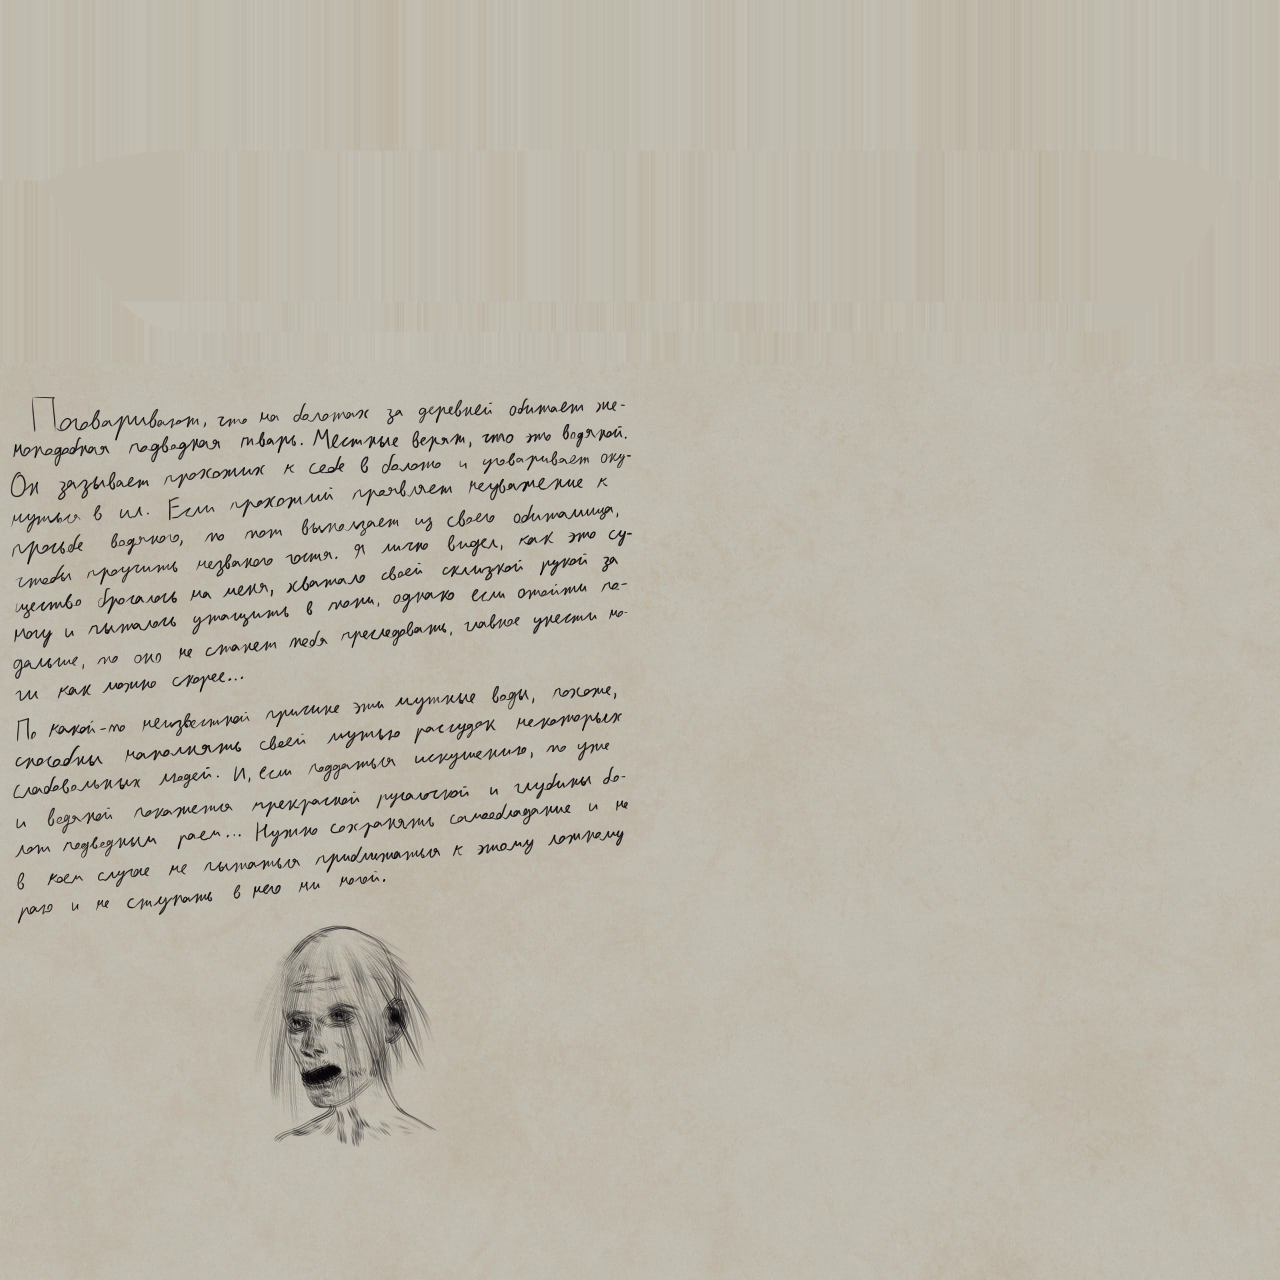 Поговаривают, что на болотах за деревней обитает же-
ноподобная подводная тварь. Местные верят, что это водяной.
Он зазывает прохожих к себе в болото и уговаривает оку-
нуться в ил. Если прохожий проявляет неуважение к
просьбе водяного, то тот выползает из своего обиталища,
чтобы проучить незваного гостя. Я лично видел, как это су-
щество бросалось на меня, хватало своей склизкой рукой за
ногу и пыталось утащить в топи, однако если отойти по-
дальше, то оно не станет тебя преследовать, главное унести но-
ги как можно скорее...
По какой-то неизвестной причине эти мутные воды, похоже,
способны наполнять своей мутью рассудок некоторых
слабовольных людей. И, если поддаться искушению, то уже
и водяной покажется прекрасной русалочкой и глубины бо-
лот подводным раем... Нужно сохранять самообладание и не
в коем случае не пытаться приближаться к этому ложному
раю и не ступать в него ни ногой.